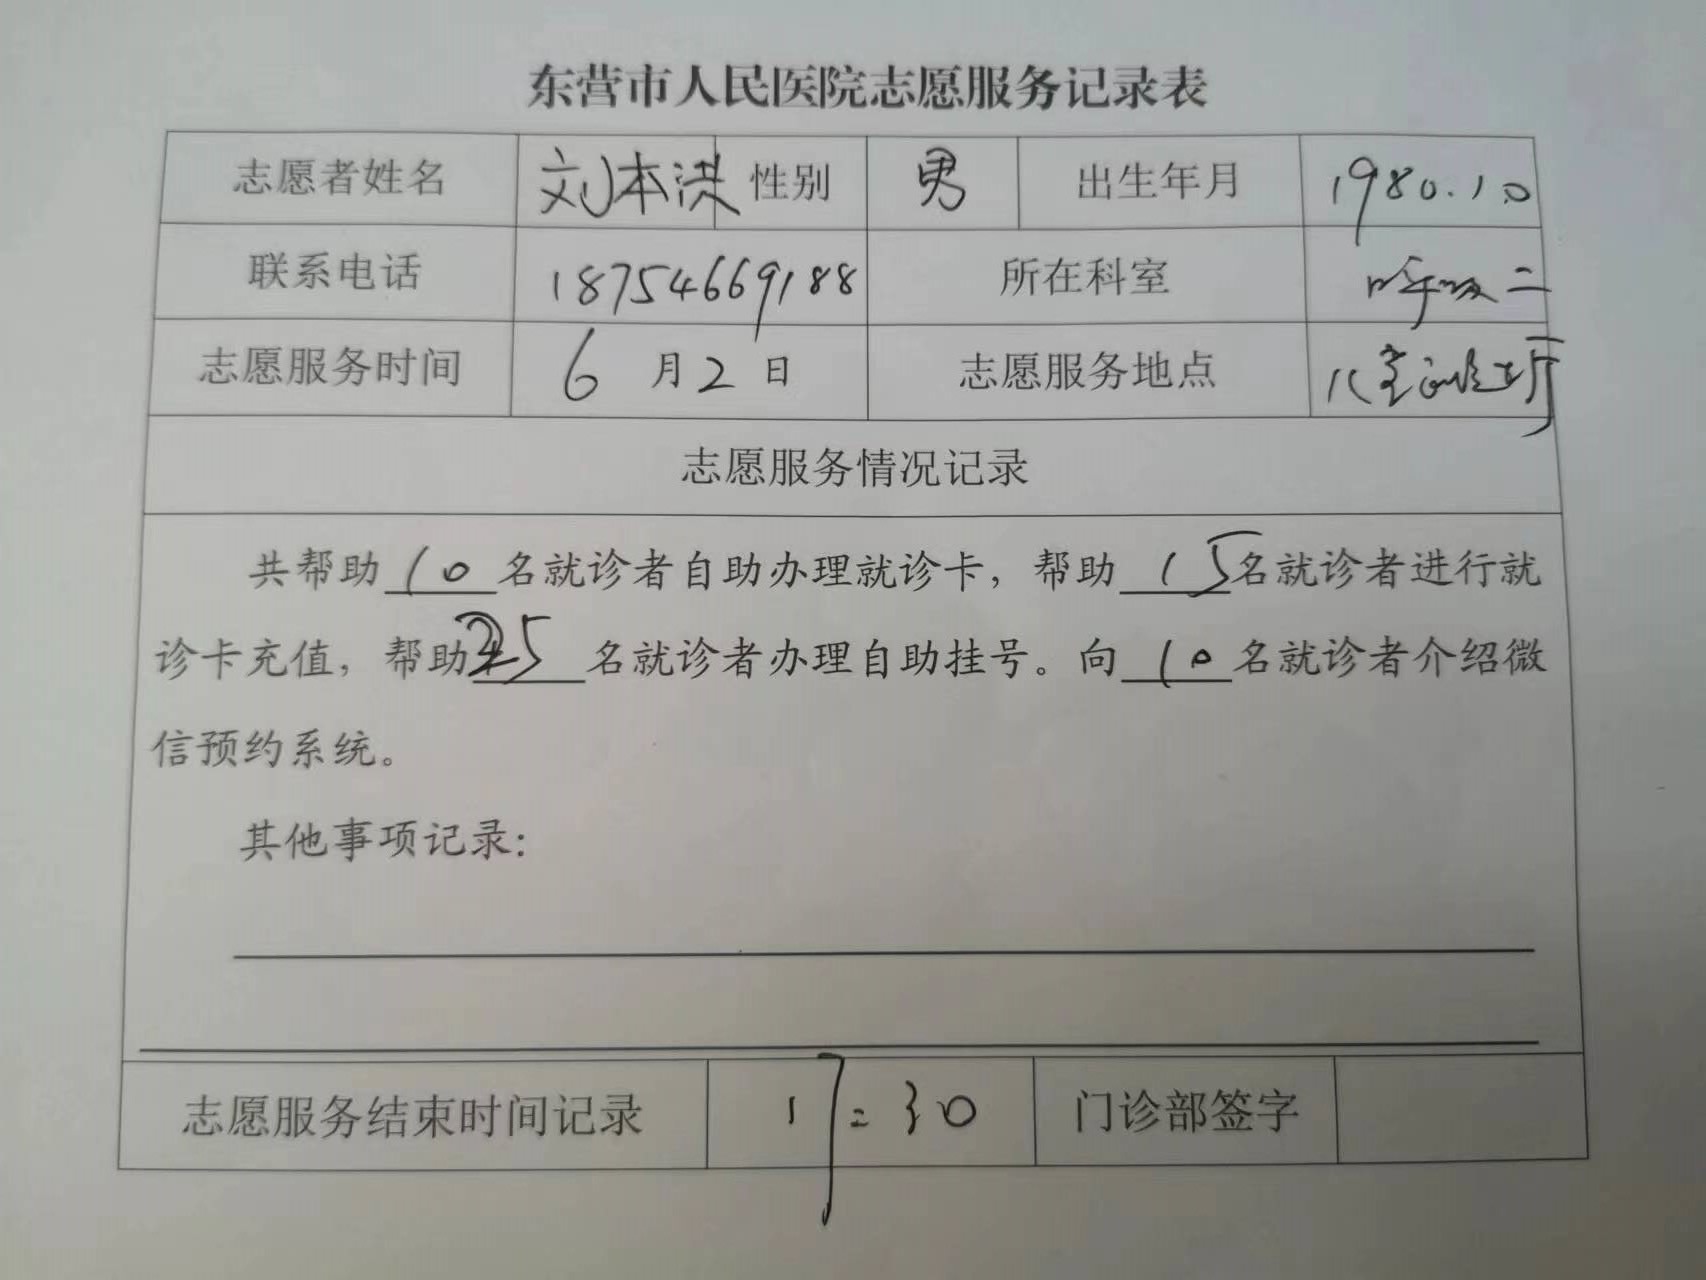 东营市人民医院志愿服务记录表
志愿者姓名 刘本洪 性别 男 出生年月 1980.10
联系电话 18754669188 所在科室 呼吸二
志愿服务时间 6月2日 志愿服务地点
志愿服务情况记录
共帮助10名就诊者自助办理就诊卡，帮助15名就诊者进行就
诊卡充值，帮助25名就诊者办理自助挂号。向10名就诊者介绍微
信预约系统。
其他事项记录：
志愿服务结束时间记录 17:30 门诊部签字